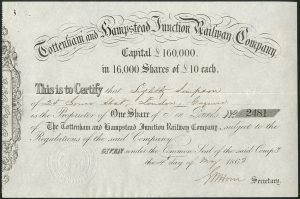 Tottenham and Hampstead Junction Railway Company.
Capital £160,000.
in 16,000 Shares of £10 each.
This is to Certify that Simpson
of Street, London, Esquire
is the Proprietor of One Share of Ten Pounds No. 2481
of The Tottenham and Hampstead Junction Railway Company, subject to the
Regulations of the said Company.
Given under the Common Seal of the said Compy.
the day of May 186
Secretary.